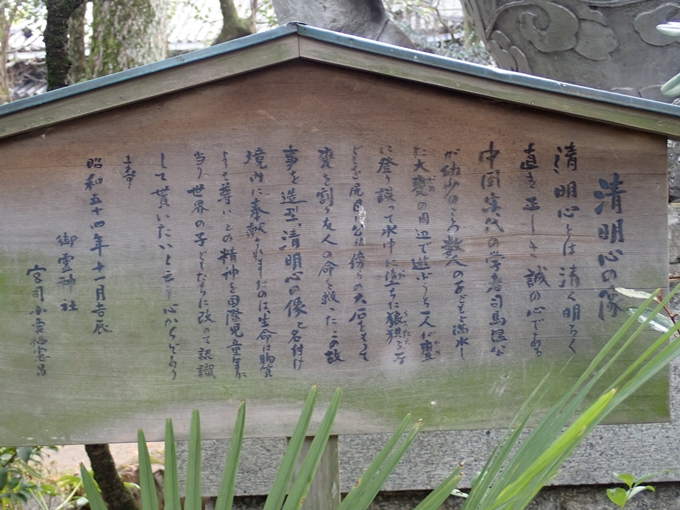 清明心の像
清明心とは清く明るく
直き正しき誠の心である
中国宋代の学者司馬温公
が幼少のころ数人の友どもと満水し
た大甕の周辺で遊ぶうち一人が甕
に登り誤って水中に墜ちた狼狽する友
どもを尻目に公は傍らの大石をもって
甕を割り友人の命を救ったこの故
事を造型、清明心の像と名付け
境内に奉献されましたのは生命は物質
よりも尊いとの精神を国際児童年に
当り世界の子どもたちに改めて認識
して貰いたいと云う心からであり
ます
昭和五十四年十一月吉辰
御霊神社
宮司